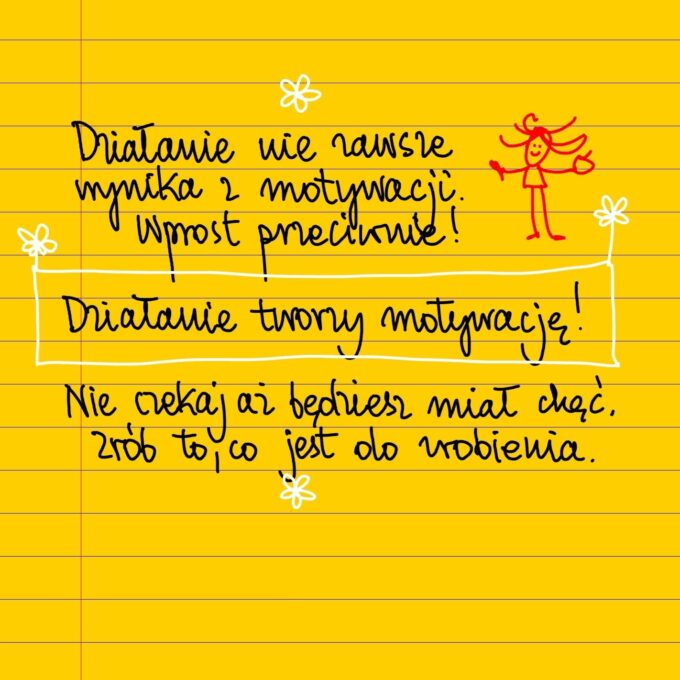 Działanie nie zawsze
wynika z motywacji.
Wprost przeciwnie!
Działanie tworzy motywację!
Nie czekaj aż będziesz miał chęć.
Zrób to, co jest do zrobienia.